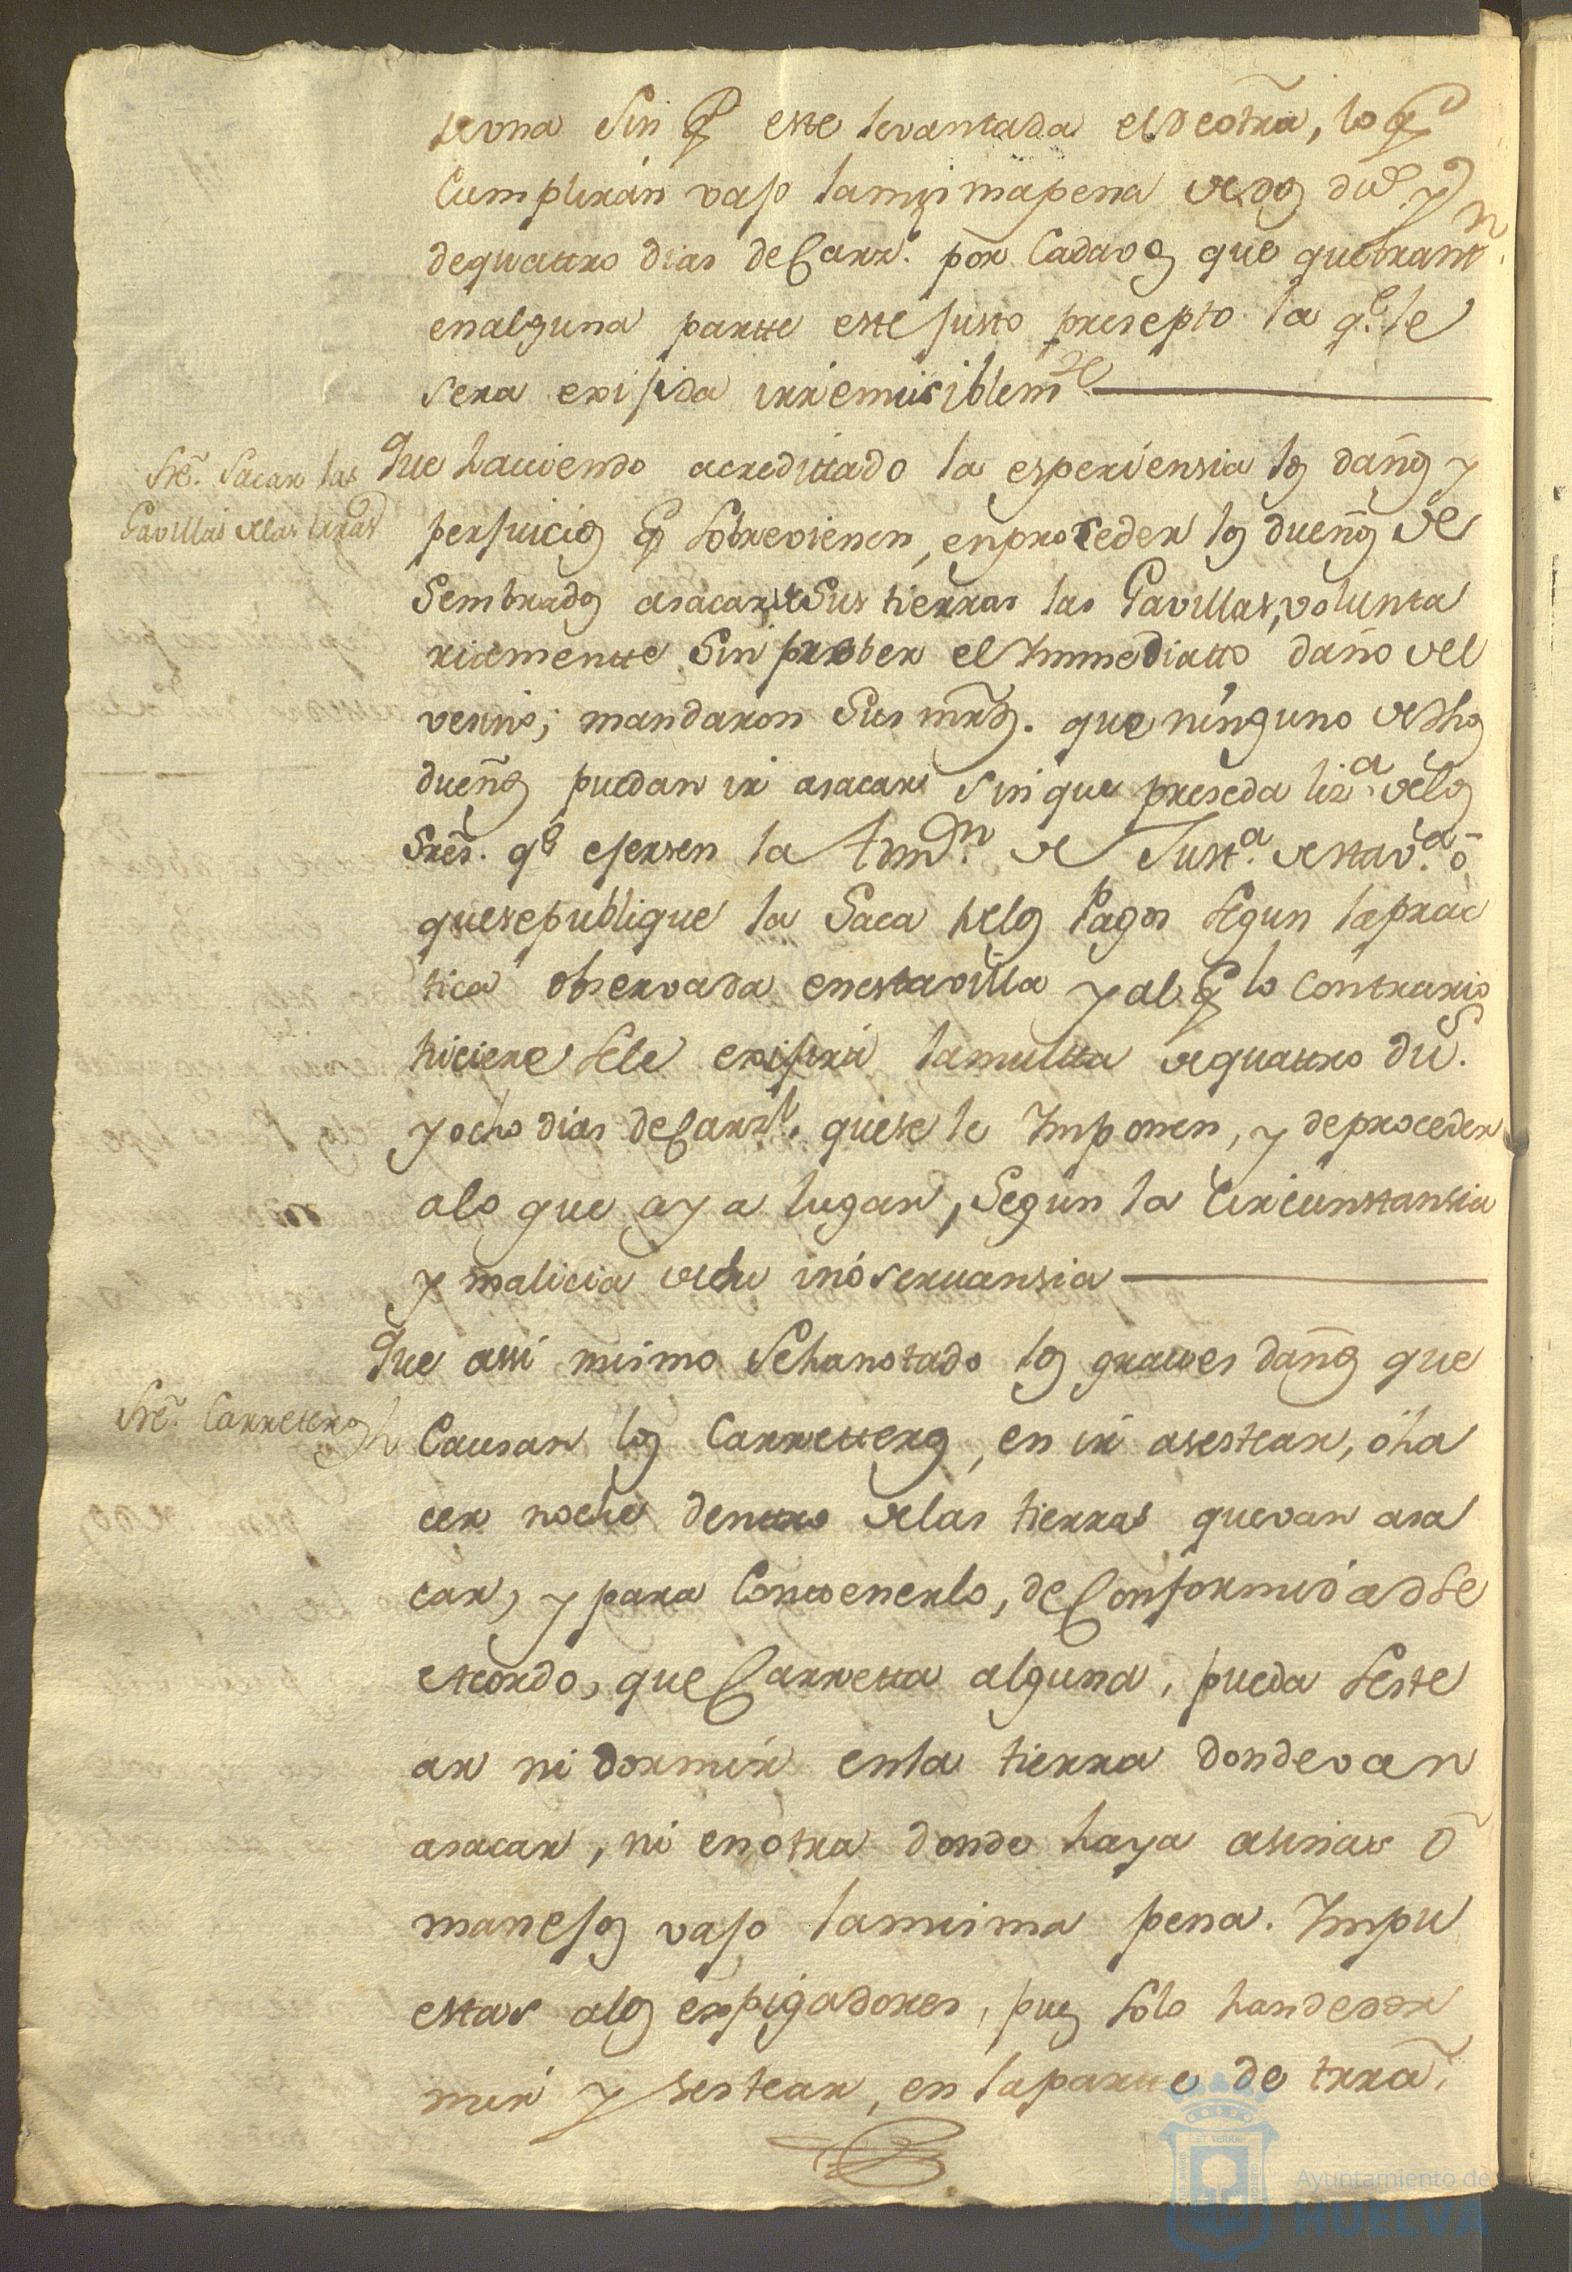 de una Sin q este levantada el de otra, lo q
Cumplirán vajo lamisma pena de dos du.s y
de quattro dias de Carz.l por Cada vos que quebrant.n
en alguna partte este justo presepto la q.e le
sera exijida irremisiblem.te
Sre. Sacar las
Gavillas de las tierras
Que haviendo acredittado la esperiensia los daños y
perjuicios q Sobrevienen, en proceder los dueños de
Sembrados asacar de Sus tierras las Gavillas, volunta
riamentte Sin prober el Immediatto daño del
vesino; mandaron Sus mrds. que ninguno de dhos
dueños puedan ir asacar sin que preseda liz.a de los
Sres. q.e ejersen la Adm.on de Justt.a de esta v.a ó
quesepublique la Saca de los Pagos Segun laprac
tica observada enestavilla y al q lo Contrario
hiciere Sele exijirá lamultta de quattro du.s
y ocho dias de Carz.l quesele Imponen, y de proceder
alo que aya lugar, Segun la Circunstansia
y malicia de su inóservansia
Sre. Carreteros
Que assi mismo Sehanotado los graves daños que
Causan los Carretteros, en ir asestear, ó ha
cer noche denttro de las tierras quevan asa
car, y para Conttenerlo, de Conformidad Se
Acordo, que Carretta alguna, pueda Seste
ar ni dormir enla tierra dondevan
asacar, ni enótra donde haya asinas ó
manejos vajo lamisma pena. Impu
estas alos expigadores, pues Solo handedor
mir y sestear, en laparte de trra.
Ayuntamiento de
HUELVA